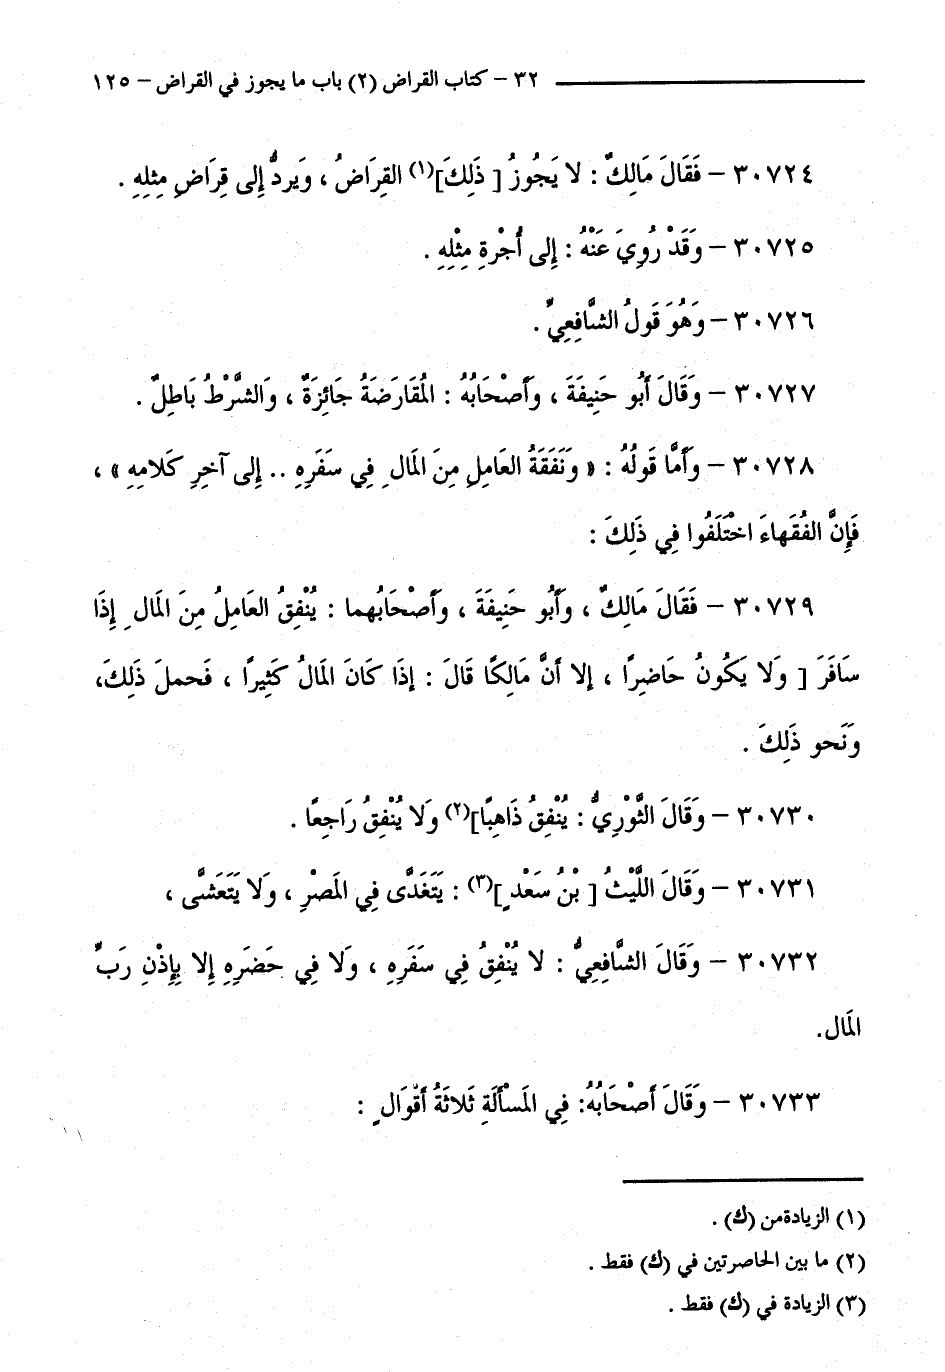 ٣٢ – كتاب القراض (٢) باب ما يجوز في القراض – ١٢٥
٣٠٧٢٤ – فَقَالَ مَالِكٌ : لا يَجُوزُ [ ذَلِكَ](١) القِرَاضُ ، وَيَردُّ إِلى قِرَاضِ مِثلِهِ .
٣٠٧٢٥ – وَقَدْ رُوِيَ عَنْهُ : إِلى أُجْرةِ مِثْلِهِ .
٣٠٧٢٦ – وَهُوَ قَولُ الشَّافِعِيِّ .
٣٠٧٢٧ – وَقَالَ أَبُو حَنِيفَةَ ، وَأَصْحَابُهُ : المُقَارَضَةُ جَائِزَةٌ ، وَالشَّرْطُ بَاطِلٌ .
٣٠٧٢٨ – وَأَمَّا قَولُهُ : « وَنَفَقَةُ العَامِلِ مِنَ المَالِ فِي سَفَرِهِ .. إِلى آخِرِ كَلامِهِ » ،
فَإِنَّ الفُقَهاءَ اخْتَلَفُوا فِي ذَلِكَ :
٣٠٧٢٩ – فَقَالَ مَالِكٌ ، وَأَبُو حَنِيفَةَ ، وَأَصْحَابُهما : يُنْفِقُ العَامِلُ مِنَ المَالِ إِذَا
سَافَرَ [ وَلا يَكُونُ حَاضِرًا ، إلا أَنَّ مَالِكًا قَالَ : إذَا كَانَ المَالُ كَثِيرًا ، فَحملَ ذَلِكَ،
وَنَحو ذَلِكَ .
٣٠٧٣٠ – وَقَالَ الثَّوْرِيُّ : يُنْفِقُ ذَاهِبًا](٢) وَلا يُنْفِقُ رَاجِعًا .
٣٠٧٣١ – وَقَالَ اللَّيْثُ [ بْنُ سَعْدٍ ](٣) : يَتَغَدَّى فِي المَصْرِ ، وَلا يَتَعَشَّى ،
٣٠٧٣٢ – وَقَالَ الشَّافِعِيُّ : لا يُنْفِقُ فِي سَفَرِهِ ، وَلا فِي حَضَرِهِ إِلا بِإِذْنِ رَبِّ
المَال.
٣٠٧٣٣ – وَقَالَ أَصْحَابُهُ: فِي المَسْأَلَةِ ثَلاثَةُ أَقْوَالٍ :
(١) الزيادةمن (ك) .
(٢) ما بين الحاصرتين في (ك) فقط .
(٣) الزيادة في (ك) فقط .